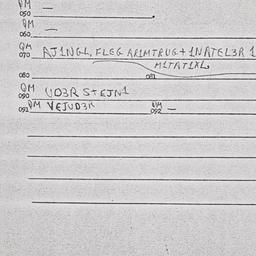 QM
050 —
QM
060 —
QM
070 AJ1NGL, FLEG AR1MTRUG + 1NATEL3R 1
M1TAT1XL
080 081
QM
090 UD3R STEJN1
QM VEJUD3R QM —
091 092